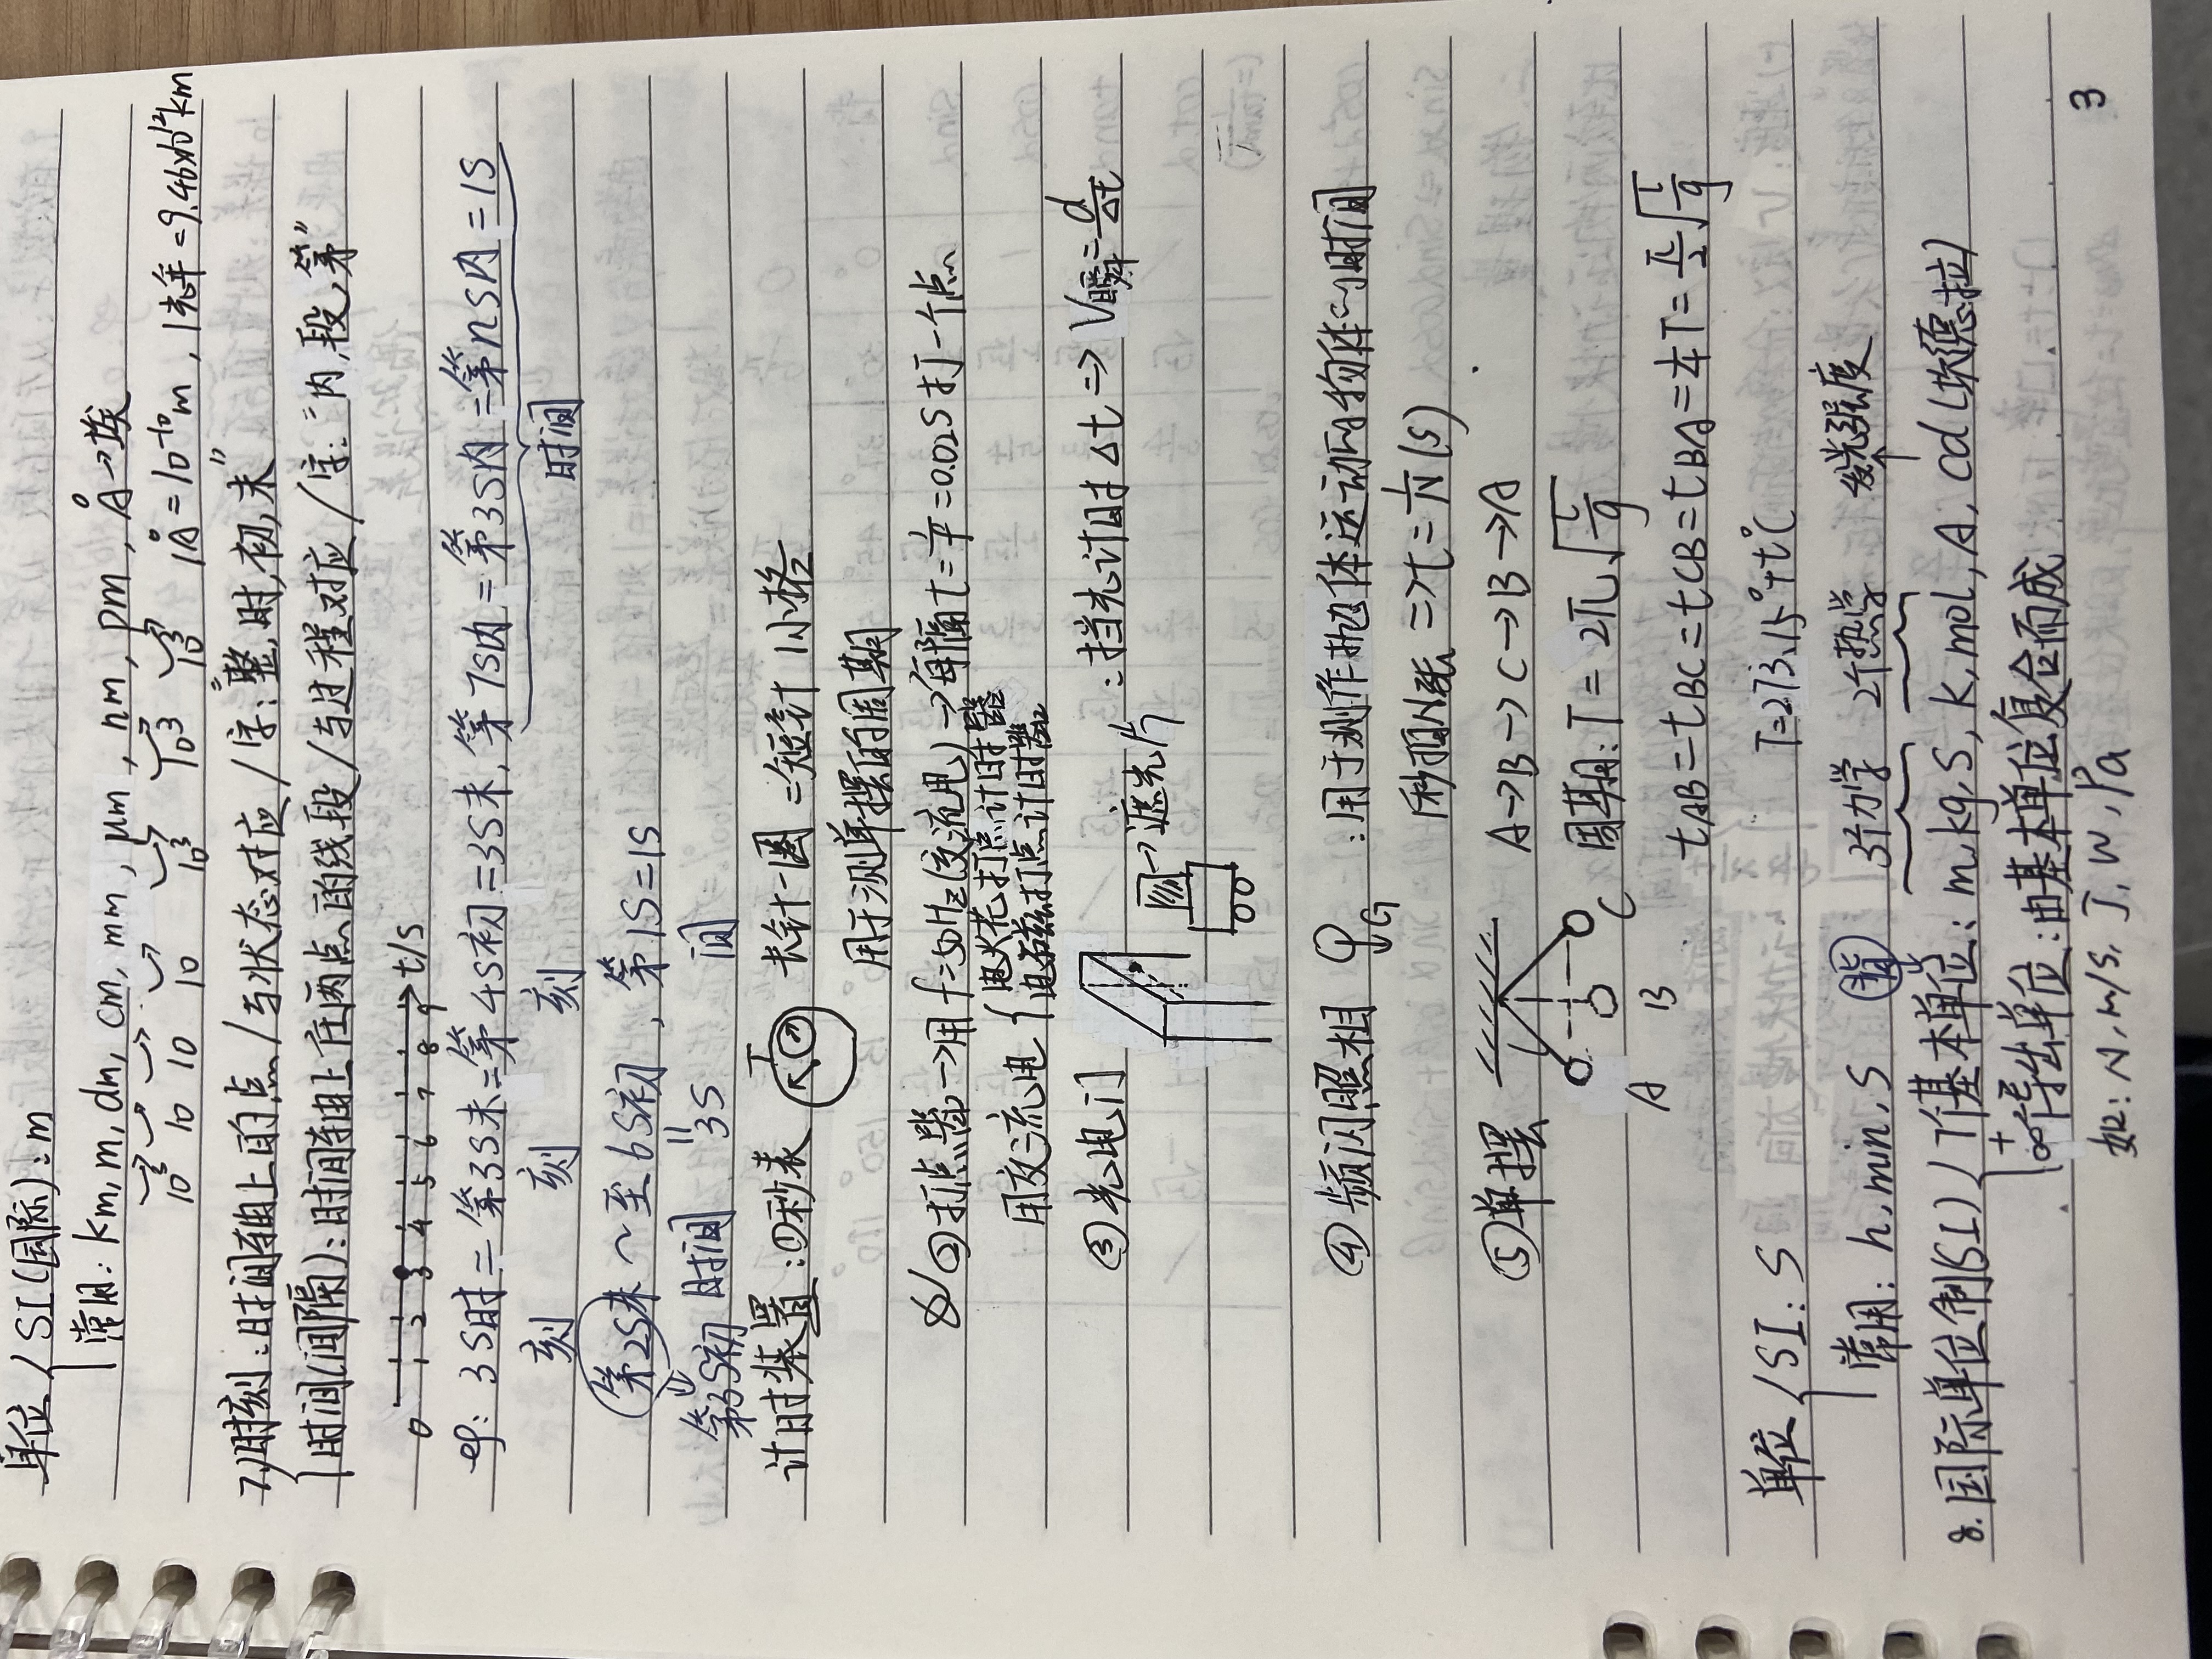 单位 { SI(国际): m
常用: km, m, dm, cm, mm, μm, nm, pm, Å→埃
10³ 10 10 10 10³ 10³ 10³ 1Å=10⁻¹⁰m, 1光年=9.46×10¹²km
7. 时刻:时间轴上的点/与状态对应/字:"整,时,初,末"
时间(间隔):时间轴上庄两点画线段/与过程对应/字:"内,段,第"
0 1 2 3 4 5 6 7 8 9 t/s
ep: 3s时=第3s末=第4s初=3s末, 第7s内=第3s内=第ns内=1s
刻 刻 刻 时间
第2s末~至6s初, 第1s=1s
第3s初 时间 3s 间
计时装置:①秒表 长针一圈=短针1小格
用于测单摆的周期
②打点器→用f=50Hz(交流电)→每隔t=1/f=0.02s打一个点
用交流电 { 电火花打点计时器
电磁打点计时器
③光电门 →遮光片:挡光计时Δt⇒V瞬=d/Δt
④频闪照相 G :用于测作抛体运动的物体的时间
1秒拍N张⇒t=1/N(s)
⑤单摆 A→B→C→B→A
A B C 周期:T=2π√(L/g)
tAB=tBC=tCB=tBA=¼T=π/2√(L/g)
单位 { SI: S T=273.15°+t℃
常用: h, min, s 指 3个力学 2个热学 发光强度
8. 国际单位制(SI) { 7个基本单位: m, kg, s, K, mol, A, cd(坎德拉)
+
∞个导出单位:由基本单位复合而成
如: N, m/s, J, W, Pa
3